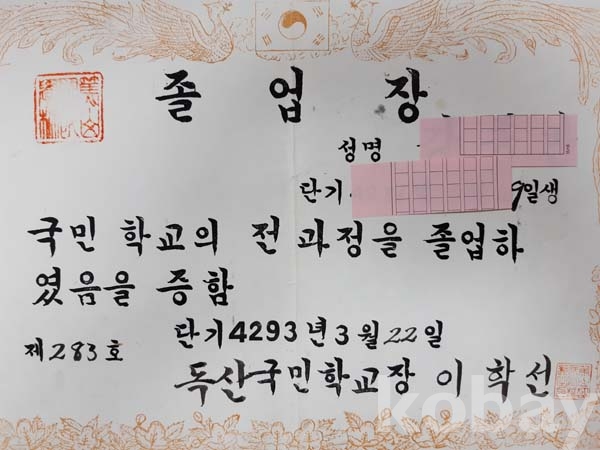 졸업장
성명
단기 9일생
국민학교의 전과정을 졸업하
였음을 증함
단기4293년3월22일
제283호
독산국민학교장 이학선
kobay